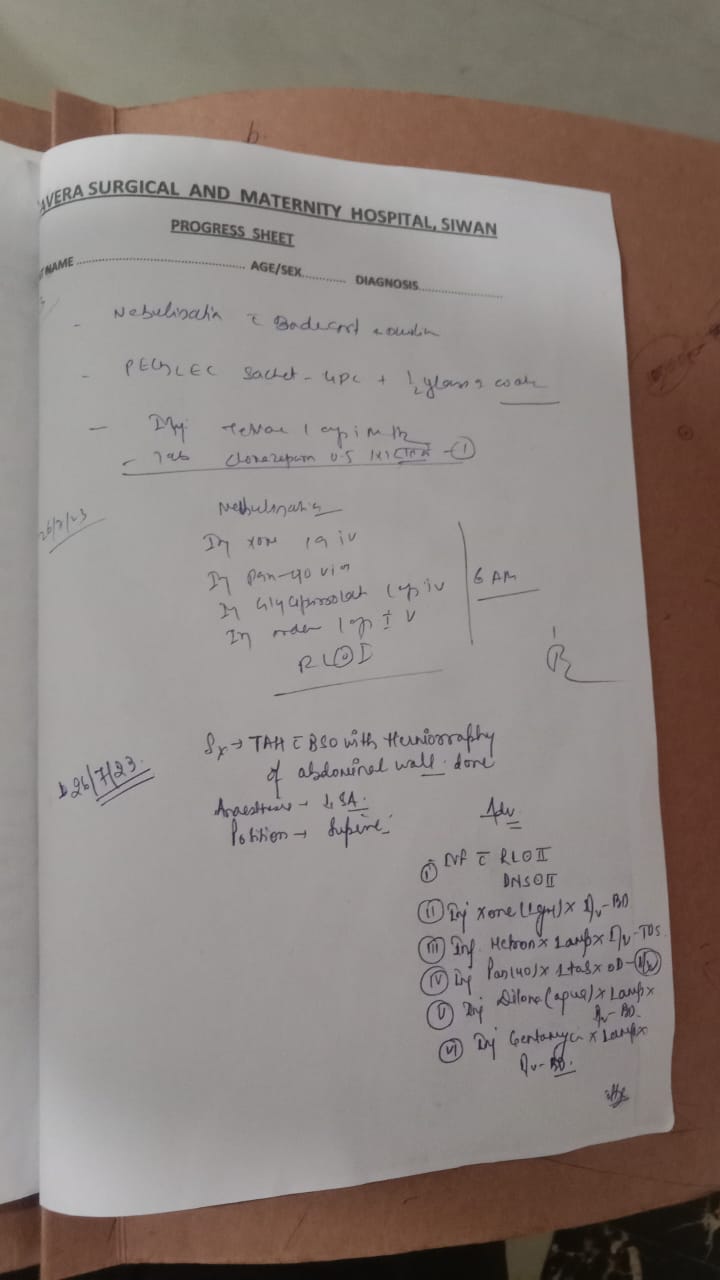 AVERA SURGICAL AND MATERNITY HOSPITAL, SIWAN
PROGRESS SHEET
NAME AGE/SEX DIAGNOSIS
- Nebulisatin c̄
- PEGLEC Sachet - + 1/2 glass
- Inj 1
- Tab clonazepam 0.5 1
26/7/23
Nebulisatin
Inj xone 1g iv
Inj Pan-40 via
Inj Glycopyrrolate iv
Inj I V
RLOI
6 AM
26/7/23.
Sx → TAH c̄ BSO with Herniorraphy
of abdominal wall done
Anaesthesia → SA.
Position → Supine.
Adv
(I) IVF c̄ RLO II
DNSO II
(II) Inj Xone (1gm) x Iv - BD
(III) Inf. Metron x 1amp x Iv - TDS.
(IV) Inj Pan(40) x 1 x OD -
(V) Inj Dilona (aqua) x 1amp x
Iv - BD.
(VI) Inj Gentamycin x 1amp x
Iv - BD.